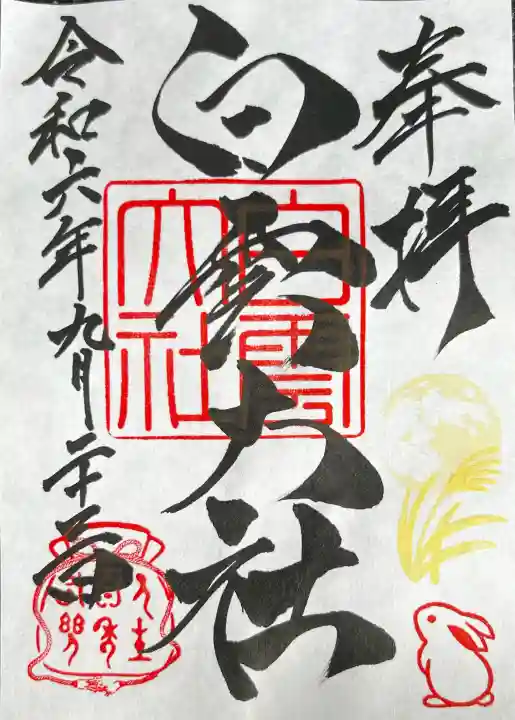 奉拝
白雲大社
令和六年九月二十
白雲
大社